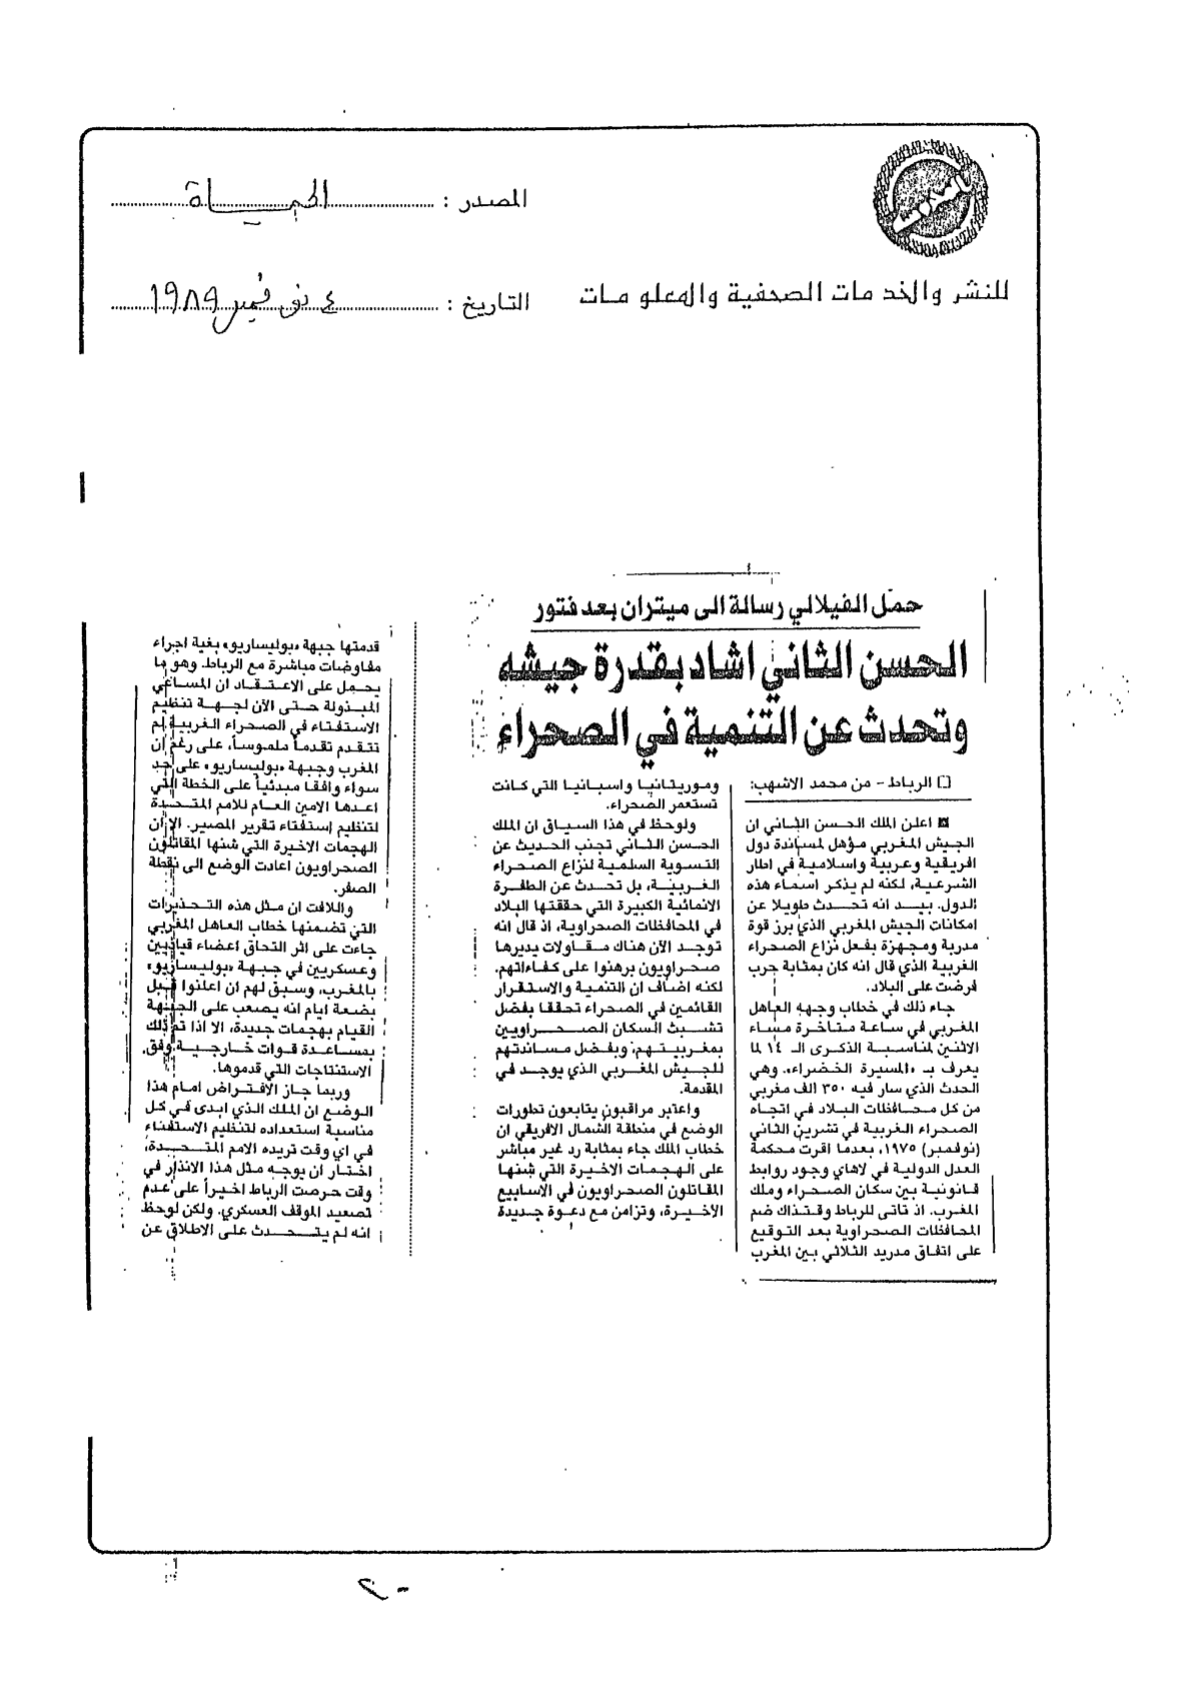 المصدر : الحياة
للنشر والخدمات الصحفية والمعلومات
التاريخ : ٤ نوفمبر ١٩٨٩
حمّل الفيلالي رسالة الى ميتران بعد فتور
الحسن الثاني اشاد بقدرة جيشه
وتحدث عن التنمية في الصحراء
الرباط - من محمد الاشهب:
اعلن الملك الحسن الثاني ان
الجيش المغربي مؤهل لمساندة دول
افريقية وعربية واسلامية في اطار
الشرعية، لكنه لم يذكر اسماء هذه
الدول. بيد انه تحدث طويلا عن
امكانات الجيش المغربي الذي برز قوة
مدربة ومجهزة بفعل نزاع الصحراء
الغربية الذي قال انه كان بمثابة حرب
فرضت على البلاد.
جاء ذلك في خطاب وجهه العاهل
المغربي في ساعة متاخرة مساء
الاثنين لمناسبة الذكرى الـ ١٤ لما
يعرف بـ «المسيرة الخضراء». وهي
الحدث الذي سار فيه ٣٥٠ الف مغربي
من كل محافظات البلاد في اتجاه
الصحراء الغربية في تشرين الثاني
(نوفمبر) ١٩٧٥، بعدما اقرت محكمة
العدل الدولية في لاهاي وجود روابط
قانونية بين سكان الصحراء وملك
المغرب. اذ تاتى للرباط وقتذاك ضم
المحافظات الصحراوية بعد التوقيع
على اتفاق مدريد الثلاثي بين المغرب
وموريتانيا واسبانيا التي كانت
تستعمر الصحراء.
ولوحظ في هذا السياق ان الملك
الحسن الثاني تجنب الحديث عن
التسوية السلمية لنزاع الصحراء
الغربية، بل تحدث عن الطفرة
الانمائية الكبيرة التي حققتها البلاد
في المحافظات الصحراوية، اذ قال انه
توجد الآن هناك مقاولات يديرها
صحراويون برهنوا على كفاءاتهم.
لكنه اضاف ان التنمية والاستقرار
القائمين في الصحراء تحققا بفضل
تشبث السكان الصحراويين
بمغربيتهم، وبفضل مساندتهم
للجيش المغربي الذي يوجد في
المقدمة.
واعتبر مراقبون يتابعون تطورات
الوضع في منطقة الشمال الافريقي ان
خطاب الملك جاء بمثابة رد غير مباشر
على الهجمات الاخيرة التي شنها
المقاتلون الصحراويون في الاسابيع
الاخيرة، وتزامن مع دعوة جديدة
قدمتها جبهة «بوليساريو» بغية اجراء
مفاوضات مباشرة مع الرباط. وهو ما
يحمل على الاعتقاد ان المساعي
المبذولة حتى الآن لجهة تنظيم
الاستفتاء في الصحراء الغربية لم
تتقدم تقدماً ملموساً، على رغم ان
المغرب وجبهة «بوليساريو» على حد
سواء وافقا مبدئياً على الخطة التي
اعدها الامين العام للامم المتحدة
لتنظيم إستفتاء تقرير المصير. الا ان
الهجمات الاخيرة التي شنها المقاتلون
الصحراويون اعادت الوضع الى نقطة
الصفر.
واللافت ان مثل هذه التحذيرات
التي تضمنها خطاب العاهل المغربي
جاءت على اثر التحاق اعضاء قياديين
وعسكريين في جبهة «بوليساريو»
بالمغرب، وسبق لهم ان اعلنوا قبل
بضعة ايام انه يصعب على الجبهة
القيام بهجمات جديدة، الا اذا تم ذلك
بمساعدة قوات خارجية وفق
الاستنتاجات التي قدموها.
وربما جاز الافتراض امام هذا
الوضع ان الملك الذي ابدى في كل
مناسبة استعداده لتنظيم الاستفتاء
في اي وقت تريده الامم المتحدة،
اختار ان يوجه مثل هذا الانذار في
وقت حرصت الرباط اخيراً على عدم
تصعيد الموقف العسكري. ولكن لوحظ
انه لم يتحدث على الاطلاق عن